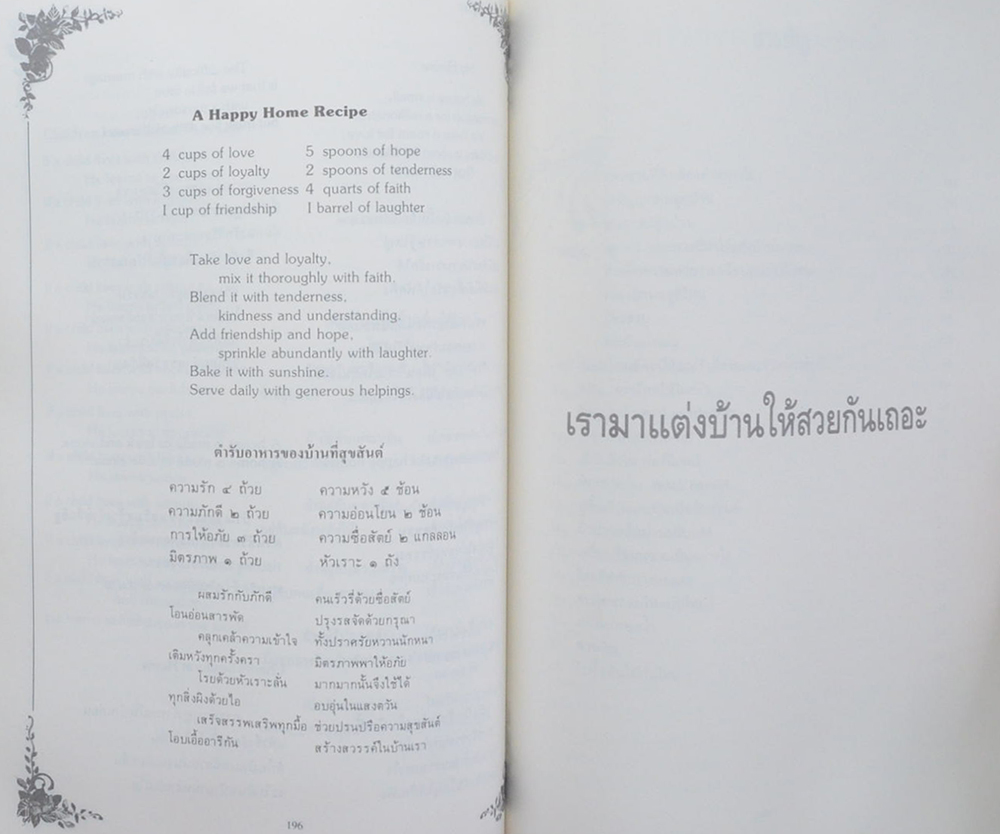 A Happy Home Recipe
4 cups of love 5 spoons of hope
2 cups of loyalty 2 spoons of tenderness
3 cups of forgiveness 4 quarts of faith
1 cup of friendship 1 barrel of laughter
Take love and loyalty,
mix it thoroughly with faith,
Blend it with tenderness,
kindness and understanding.
Add friendship and hope,
sprinkle abundantly with laughter.
Bake it with sunshine.
Serve daily with generous helpings.
ตำรับอาหารของบ้านที่สุขสันต์
ความรัก ๔ ถ้วย ความหวัง ๕ ช้อน
ความภักดี ๒ ถ้วย ความอ่อนโยน ๒ ช้อน
การให้อภัย ๓ ถ้วย ความซื่อสัตย์ ๒ แกลลอน
มิตรภาพ ๑ ถ้วย หัวเราะ ๑ ถัง
ผสมรักกับภักดี คนเร็วรี่ด้วยซื่อสัตย์
โอนอ่อนสารพัด ปรุงรสจัดด้วยกรุณา
คลุกเคล้าความเข้าใจ ทั้งปราศรัยหวานนักหนา
เติมหวังทุกครั้งครา มิตรภาพพาให้อภัย
โรยด้วยหัวเราะลั่น มากมากนั้นจึงใช้ได้
ทุกสิ่งผิงด้วยไอ อบอุ่นในแสงตวัน
เสร็จสรรพเสริพทุกมื้อ ช่วยปรนปรือความสุขสันต์
โอบเอื้ออารีกัน สร้างสวรรค์ในบ้านเรา
196
เรามาแต่งบ้านให้สวยกันเถอะ